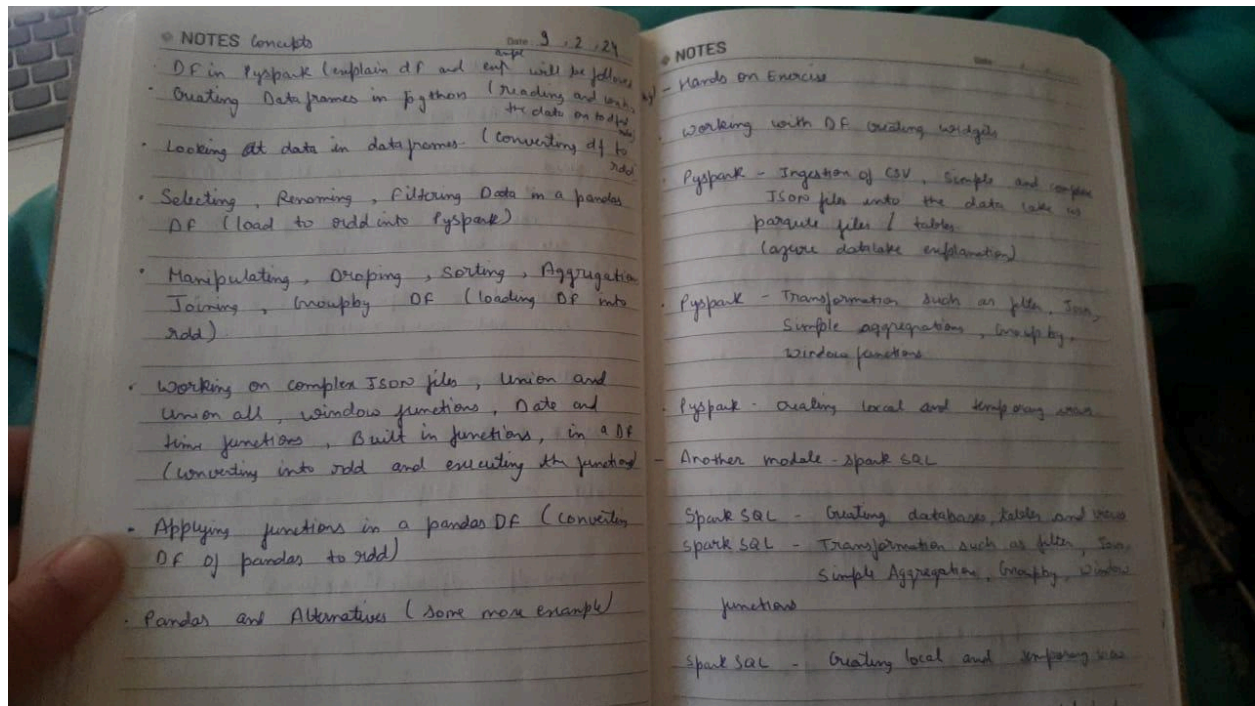 NOTES Concepts
Date 9, 2, 24
DF in Pyspark (explain df and will be followed by)
Creating Dataframes in python (reading and
the data on to
Looking at data in dataframes. (converting df to
rdd
Selecting, Renaming, Filtering Data in a pandas
DF (load to rdd into Pyspark)
Manipulating, Droping, Sorting, Aggregation
Joining, Groupby DF (loading DF into
rdd)
Working on complex JSON files, Union and
Union all, window functions, Date and
time functions, Built in functions, in a DF
(converting into rdd and executing the function)
Applying functions in a pandas DF (converting
DF of pandas to rdd)
Pandas and Alternatives (some more example)
NOTES
Date
- Hands on Exercise
working with DF creating widgets
Pyspark - Ingestion of CSV, Simple and complex
JSON files into the data lake as
parqute files / tables
(azure datalake explanation)
Pyspark - Transformation such as filter, Join,
Simple aggregations, Group by,
Window functions
Pyspark - creating local and temporary views
- Another module - spark SQL
Spark SQL - Creating databases, tables and views
Spark SQL - Transformation such as filter, Join,
Simple Aggregation, Groupby, Window
functions
Spark SQL - Creating local and temporary views